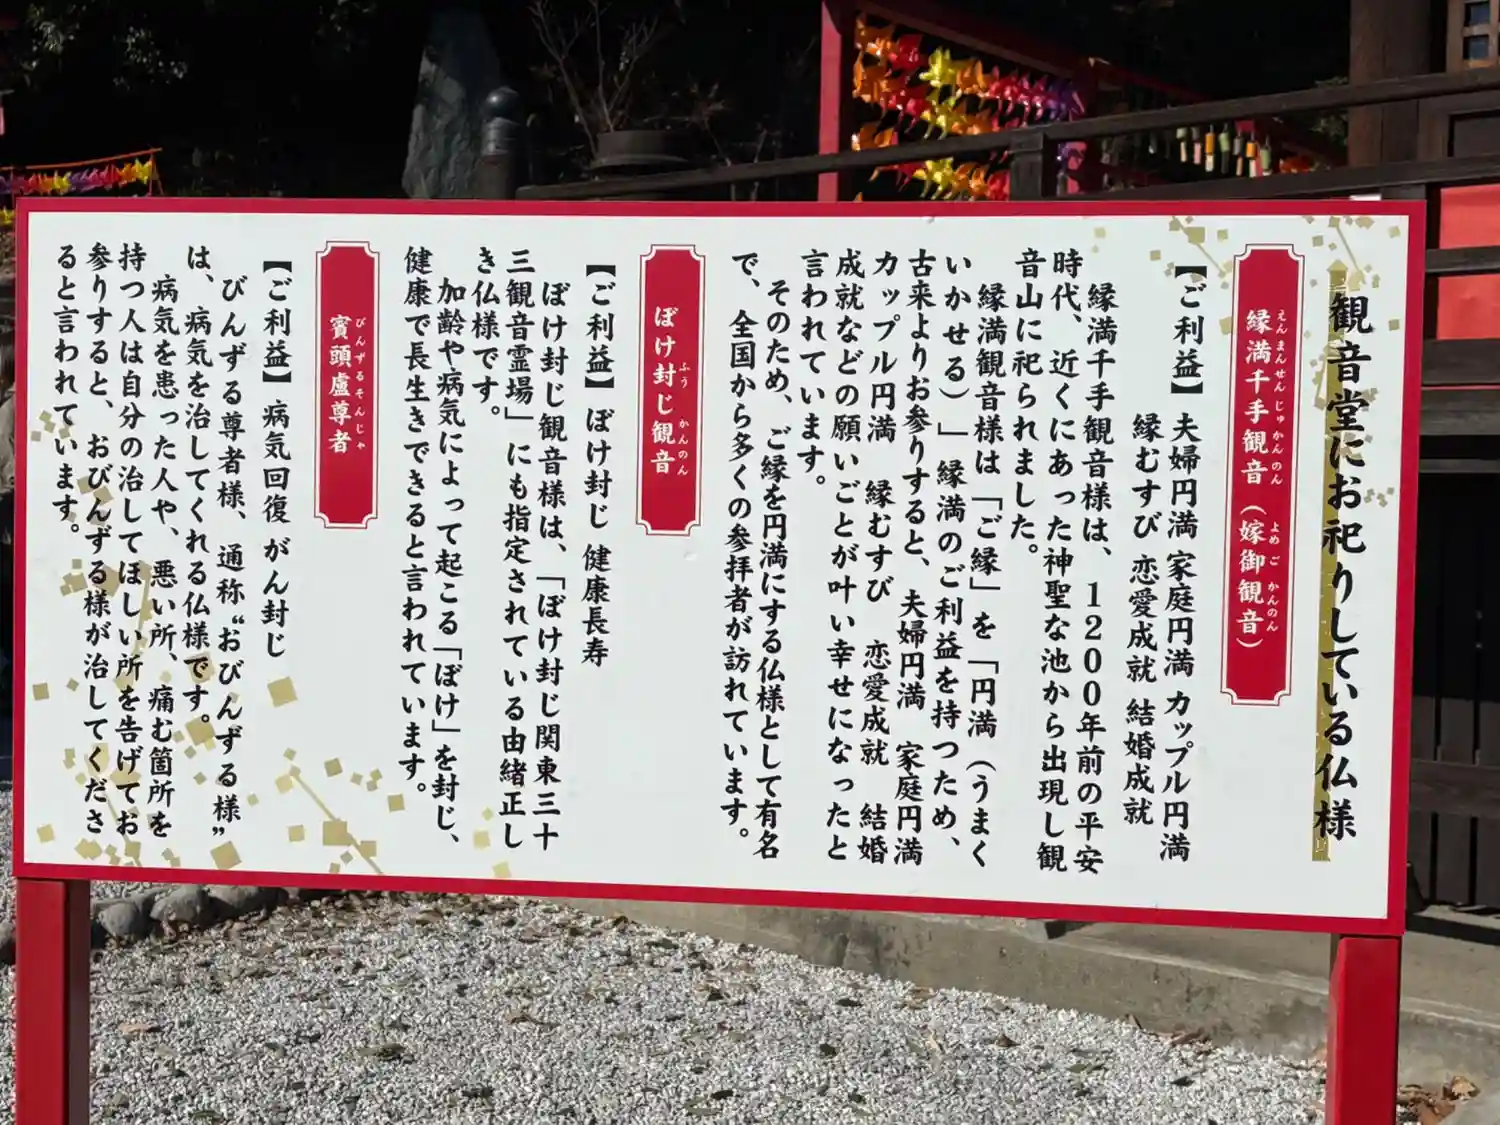 観音堂にお祀りしている仏様
縁満千手観音（嫁御観音）
えんまんせんじゅかんのん
よめごかんのん
【ご利益】夫婦円満 家庭円満 カップル円満
縁むすび 恋愛成就 結婚成就
縁満千手観音様は、1200年前の平安
時代、近くにあった神聖な池から出現し観
音山に祀られました。
縁満観音様は「ご縁」を「円満（うまく
いかせる）」縁満のご利益を持つため、
古来よりお参りすると、夫婦円満 家庭円満
カップル円満 縁むすび 恋愛成就 結婚
成就などの願いごとが叶い幸せになったと
言われています。
そのため、ご縁を円満にする仏様として有名
で、全国から多くの参拝者が訪れています。
ぼけ封じ観音
ふう かんのん
【ご利益】ぼけ封じ 健康長寿
ぼけ封じ観音様は、「ぼけ封じ関東三十
三観音霊場」にも指定されている由緒正し
き仏様です。
加齢や病気によって起こる「ぼけ」を封じ、
健康で長生きできると言われています。
賓頭盧尊者
びんずるそんじゃ
【ご利益】病気回復 がん封じ
びんずる尊者様、通称“おびんずる様”
は、病気を治してくれる仏様です。
病気を患った人や、悪い所、痛む箇所を
持つ人は自分の治してほしい所を告げてお
参りすると、おびんずる様が治してくださ
ると言われています。